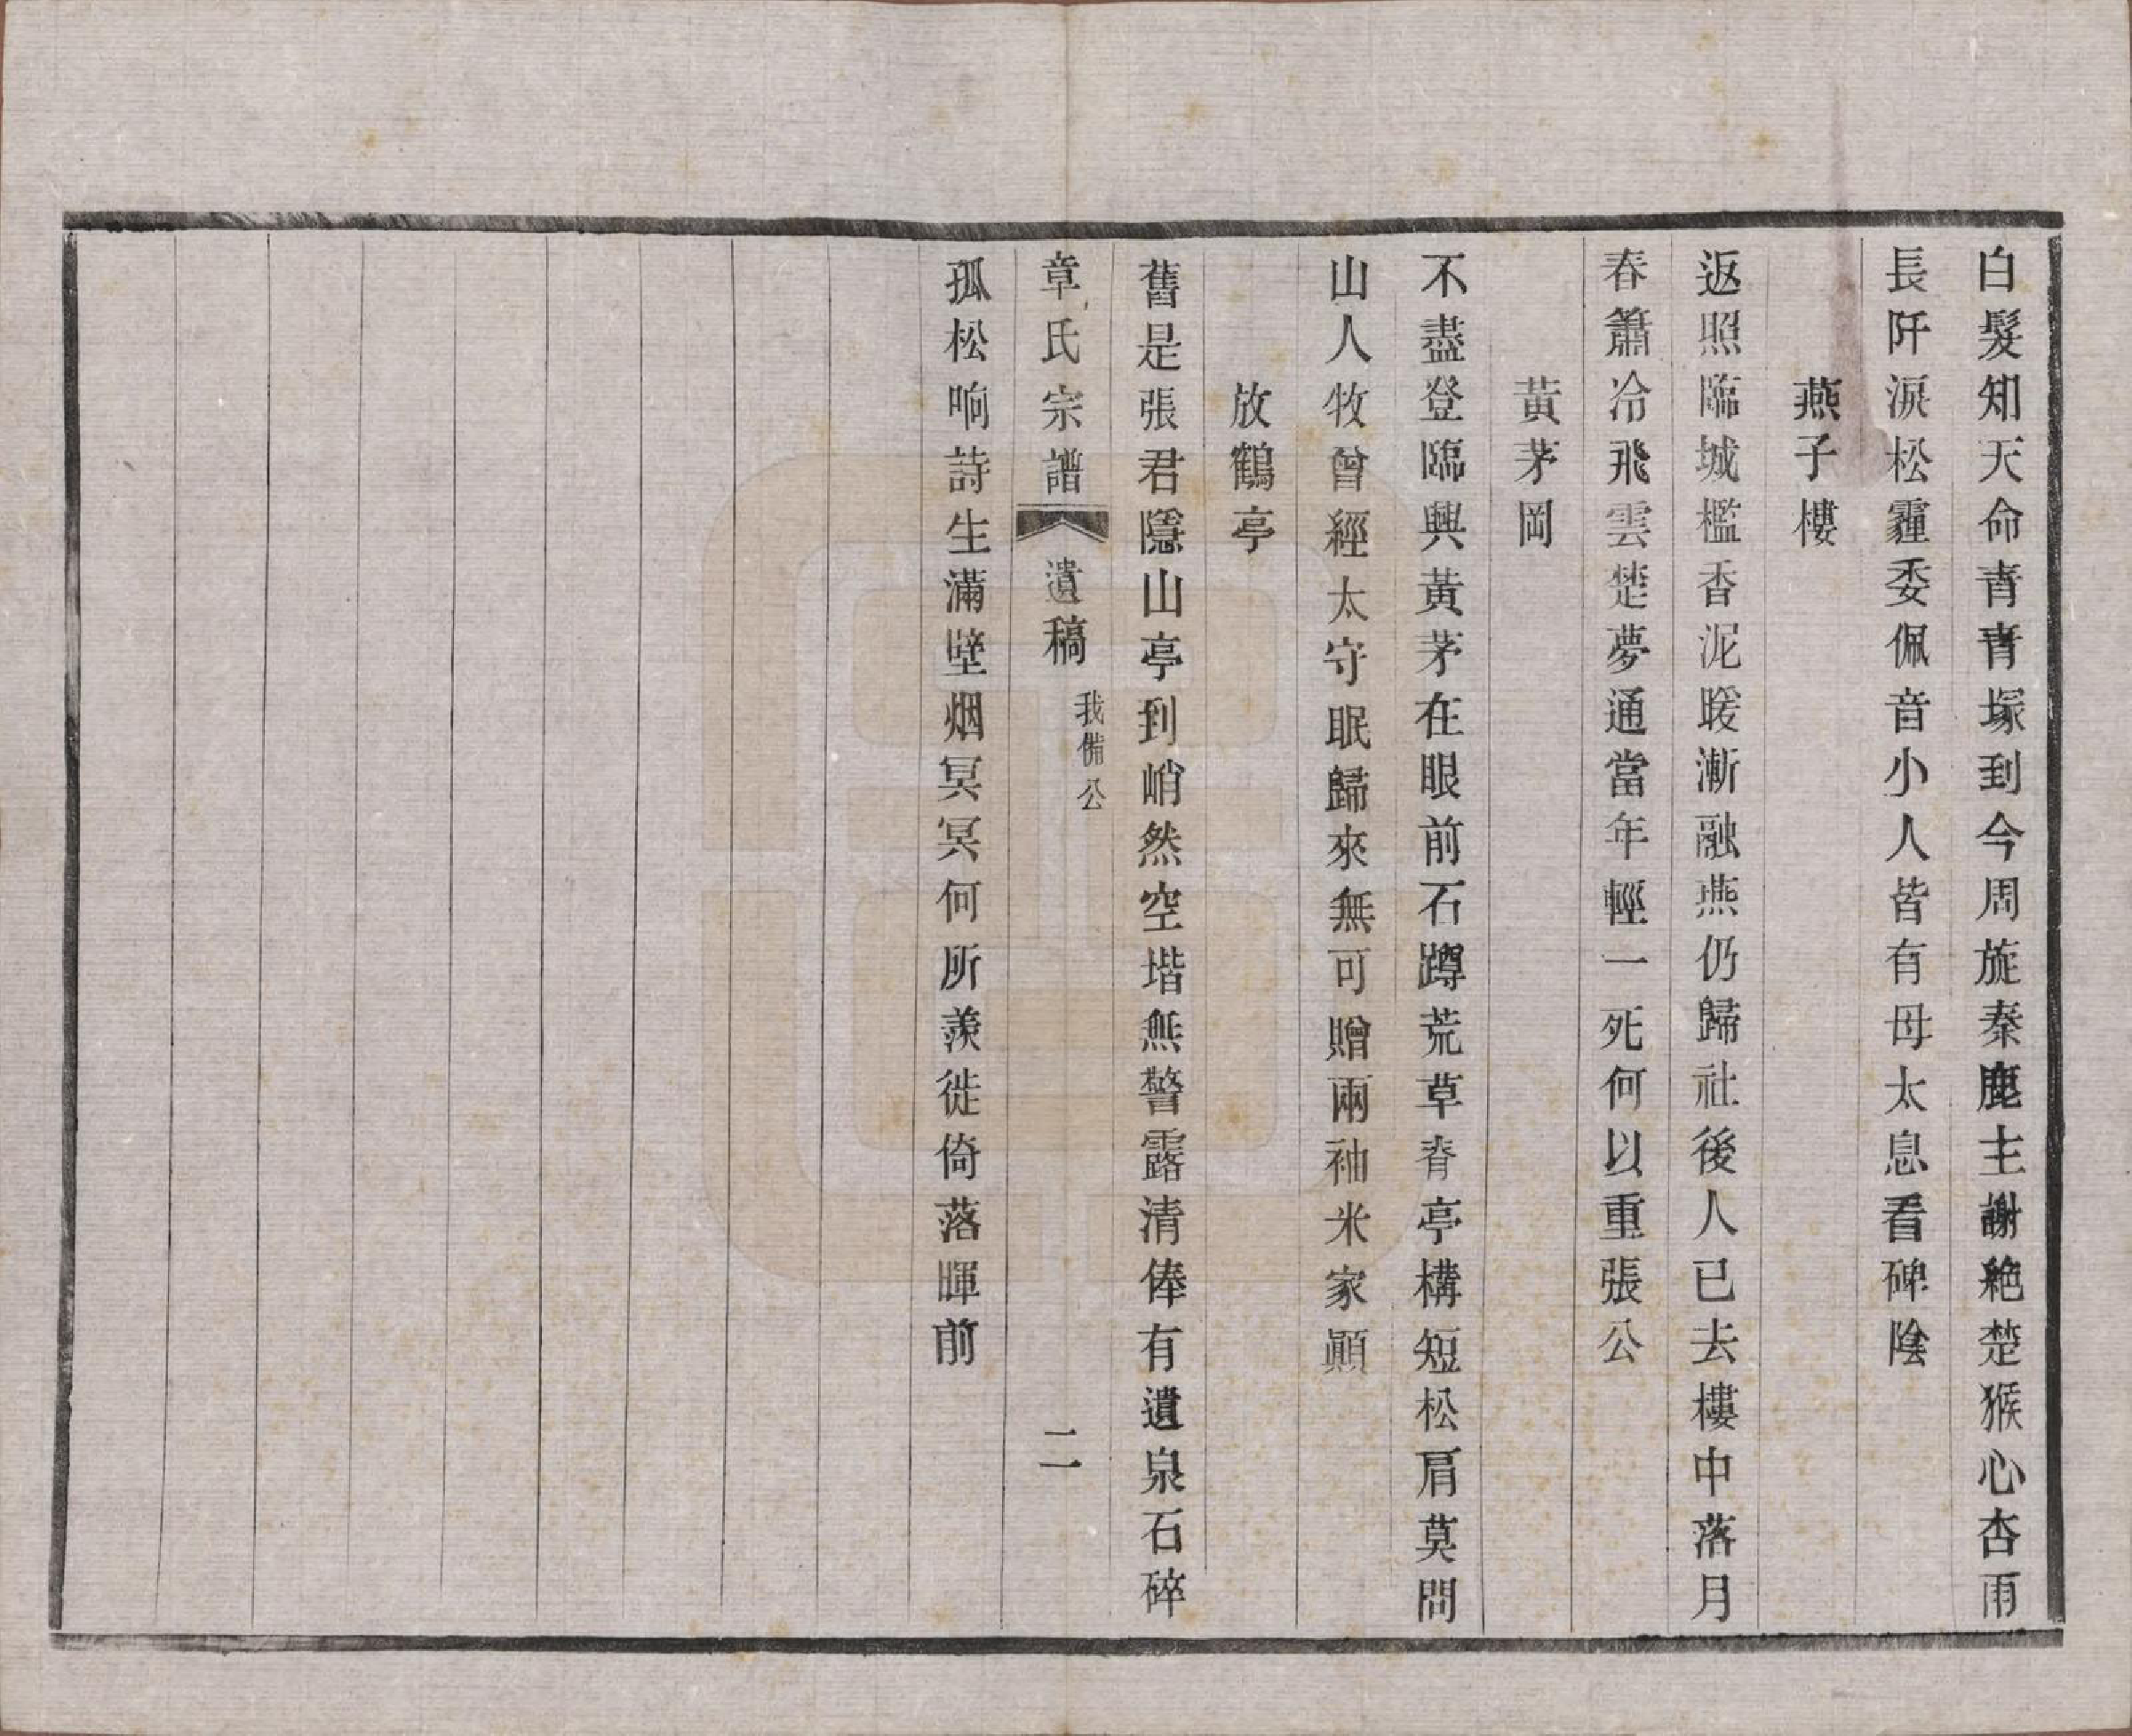 白髮知天命青青塚到今周旌秦鹿主謝絶楚猴心杏雨
長阡淚松霾委佩音小人皆有母太息看碑陰
燕子樓
返照臨城檻香泥暖漸融燕仍歸社後人已去樓中落月
春簫冷飛雲楚夢通當年輕一死何以重張公
黃茅岡
不盡登臨興黃茅在眼前石蹲荒草脊亭構短松肩莫問
山人牧曾經太守眠歸來無可贈兩袖米家顚
放鶴亭
舊是張君隱山亭到峭然空堦無警露清俸有遺泉石碎
章氏宗譜 遺稿 我備公 二
孤松响詩生滿壁烟冥冥何所羨徙倚落暉前